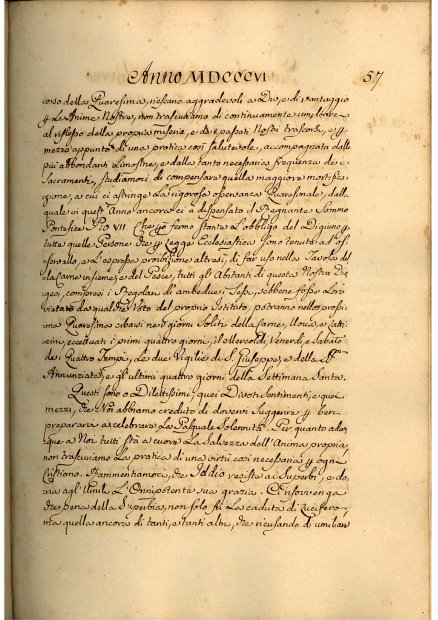 Anno MDCCCVI 57
corso della Quaresima, riescano aggradevoli a Dio, e di vantaggio
p le Anime Nostre, non trascuriamo di continuamente umiliarci
al riflesso della propria miseria, e de' passati Nostri trascorsi, e p
mezzo appunto di una pratica così salutevole, accompagnata dalle
più abbondanti Limosine, e dalla tanto necessaria frequenza de'
Sacramenti, studiamoci di compensare quella maggiore mortifica-
zione, a cui ci astringe La rigorosa osservanza Quaresimale, dalla
quale in quest'Anno ancora ci a dispensato il Regnante Sommo
Pontefice Pio VII. Che p fermo stante L'obbligo del Digiuno p
tutte quelle Persone che p Legge Ecclesiastica sono tenute ad os-
servarlo, e L'espressa proibizione altresì, di far uso nella Tavola del-
la Carne insieme, e del Pesce, tutti gli Abitanti di questa Nostra Dio-
gesi, compresi i Regolari di ambedue i Sessi, sebbene fosse Loro
vietato da qualche Voto del proprio Istituto, potranno nella prossi-
ma Quaresima cibarsi ne' giorni soliti della Carne, Uova, e Latti-
cini, eccettuati i primi quattro giorni, il Mercoldì, Venerdì, e Sabato
de' Quattro Tempi, Le due Vigilie di S. Giuseppe, e della SSma
Annunziata, e gl'ultimi quattro giorni della Settimana Santa.
Questi sono o Dilettissimi quei Divoti Sentimenti, e quei
mezzi, che Noi abbiamo creduto di dovervi Suggerire p ben
prepararvi a celebrare La Pasquale Solennità. Per quanto adun-
que a Noi tutti stà a cuore La Salvezza dell'Anima propria,
non trascuriamo La pratica di una virtù così necessaria p ogni
Cristiano. Rammentiamoci, che Iddio resiste ai Superbi, e do-
na agl'Umili L'Onnipotente sua grazia. Ci sovvenga
che pena della Superbia, non solo fù La caduta di Lucifero
ma quella ancora di tanti, e tanti altri, che ricusando di umiliarsi